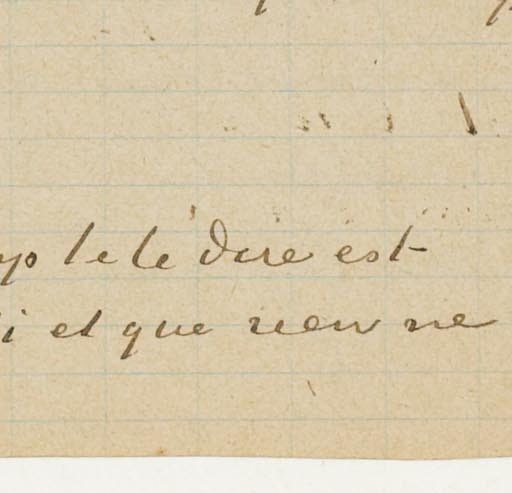 le le dire est
et que rien ne